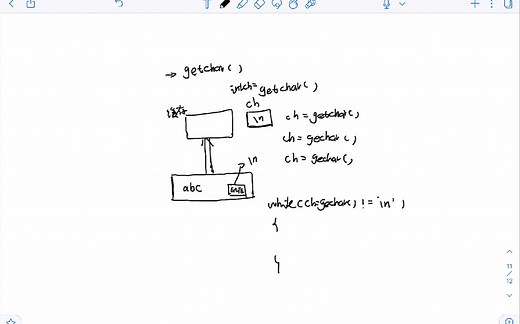 → getchar()
int ch = getchar();
ch
缓存
\n
ch = getchar();
ch = gechar();
ch = gechar();
\n
abc
while(ch=gechar() != '\n');
{
}
11
12